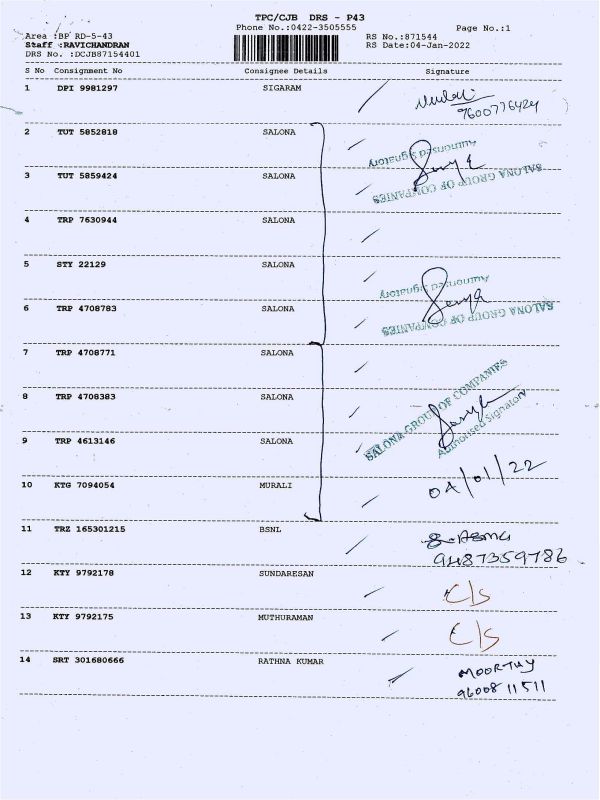 TPC/CJB DRS - P43
Phone No.:0422-3505555
Page No.:1
Area :BP RD-5-43
RS No.:871544
Staff :RAVICHANDRAN
RS Date:04-Jan-2022
DRS No. :DCJB87154401
S No Consignment No Consignee Details Signature
1 DPI 9981297 SIGARAM
9600776424
2 TUT 5852818 SALONA
Authorised Signatory
SALONA GROUP OF COMPANIES
3 TUT 5859424 SALONA
4 TRP 7630944 SALONA
5 STY 22129 SALONA
Authorised Signatory
SALONA GROUP OF COMPANIES
6 TRP 4708783 SALONA
7 TRP 4708771 SALONA
SALONA GROUP OF COMPANIES
Authorised Signatory
8 TRP 4708383 SALONA
9 TRP 4613146 SALONA
10 KTG 7094054 MURALI
04/01/22
11 TRZ 165301215 BSNL
9487359786
12 KTY 9792178 SUNDARESAN
C/S
13 KTY 9792175 MUTHURAMAN
C/S
14 SRT 301680666 RATHNA KUMAR
MOORTHY
9600811511